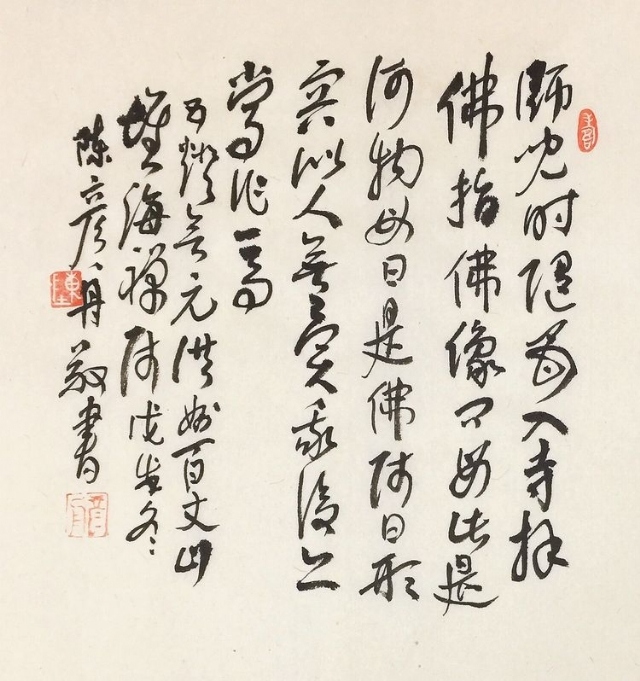 師兒時隨母入寺拜
佛指佛像問母此是
何物母曰是佛師曰形
容似人無異我後亦
當作焉
五燈會元洪州百丈山
懷海禪師戊戌冬
陳彥舟敬書